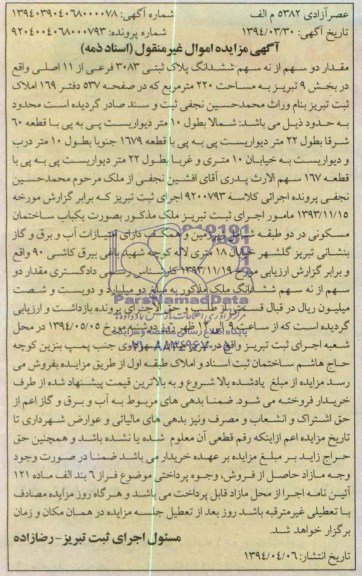 عصرآزادی ۵۳۸۲ م الف
شماره آگهی: ۱۳۹۴۰۳۹۰۴۰۶۸۰۰۰۰۷۸
تاریخ آگهی: ۱۳۹۴/۰۳/۳۰
شماره پرونده: ۹۲۰۴۰۰۴۰۶۸۰۰۰۷۹۳
آگهی مزایده اموال غیرمنقول (اسناد ذمه)
مقدار دو سهم از نه سهم ششدانگ پلاک ثبتی ۳۰۸۳ فرعی از ۱۱ اصلی واقع
در بخش ۹ تبریز به مساحت ۲۲۰ مترمربع که در صفحه ۵۳۷ دفتر ۱۶۹ املاک
ثبت تبریز بنام وراث محمدحسین نجفی ثبت و سند صادر گردیده است محدود
به حدود ذیل می باشد: شمالا بطول ۱۰ متر دیواریست پی به پی با قطعه ۶۰
شرقا بطول ۲۲ متر دیواریست پی به پی با قطعه ۱۶۷۹ جنوبا بطول ۱۰ متر درب
و دیواریست به خیابان ۱۰ متری و غربا بطول ۲۲ متر دیواریست پی به پی با
قطعه ۱۶۷ سهم الارث پدری آقای افشین نجفی از ملک مرحوم محمدحسین
نجفی پرونده اجرائی کلاسه ۹۲۰۰۷۹۳ اجرای ثبت تبریز که برابر گزارش مورخه
۱۳۹۳/۱۱/۱۵ مامور اجرای ثبت تبریز ملک مذکور بصورت یکباب ساختمان
مسکونی در دو طبقه دارای امتیازات آب و برق و گاز
بنشانی تبریز گلشهر ۱۸ متری لاله کوچه شهید بیرق کاشی ۹۰ واقع
و برابر گزارش ارزیابی ۱۳۹۳/۱۱/۱۹ کارشناس رسمی دادگستری مقدار دو
سهم از نه سهم ششدانگ ملک مذکور به مبلغ دو میلیارد و دویست و شصت
میلیون ریال در قبال پرونده بازداشت و ارزیابی
گردیده است که از ساعت ۹ الی ۱۲ ظهر مورخ ۱۳۹۴/۰۵/۰۵ در محل
شعبه اجرای ثبت تبریز واقع در جنب پمپ بنزین کوچه
حاج هاشم ساختمان ثبت اسناد و املاک طبقه اول از طریق مزایده بفروش می
رسد مزایده از مبلغ یادشده بالا شروع و به بالاترین قیمت پیشنهاد شده از طرف
خریدار فروخته می شود. ضمنا بدهی های مربوط به آب و برق و گاز اعم از
حق اشتراک و انشعاب و مصرف و نیز بدهی های مالیاتی و عوارض شهرداری تا
تاریخ مزایده اعم ازاینکه رقم قطعی آن معلوم شده یا نشده باشد و همچنین حق
حراج زاید بر مبلغ مزایده بر عهده خریدار می باشد ضمنا در صورت وجود
وجه مازاد حاصل از فروش، وجوه پرداختی موضوع فراز ۶ بند الف ماده ۱۲۱
آئین نامه اجرا از محل مازاد قابل پرداخت می باشد و هرگاه روز مزایده مصادف
با تعطیلی غیرمترقبه باشد روز بعد از تعطیل جلسه مزایده در همان مکان و زمان
برگزار خواهد شد.
مسئول اجرای ثبت تبریز - رضازاده
تاریخ انتشار: ۱۳۹۴/۰۴/۰۶
ParsNamadData
۰۲۱-۸۸۳۴۹۶۷۰